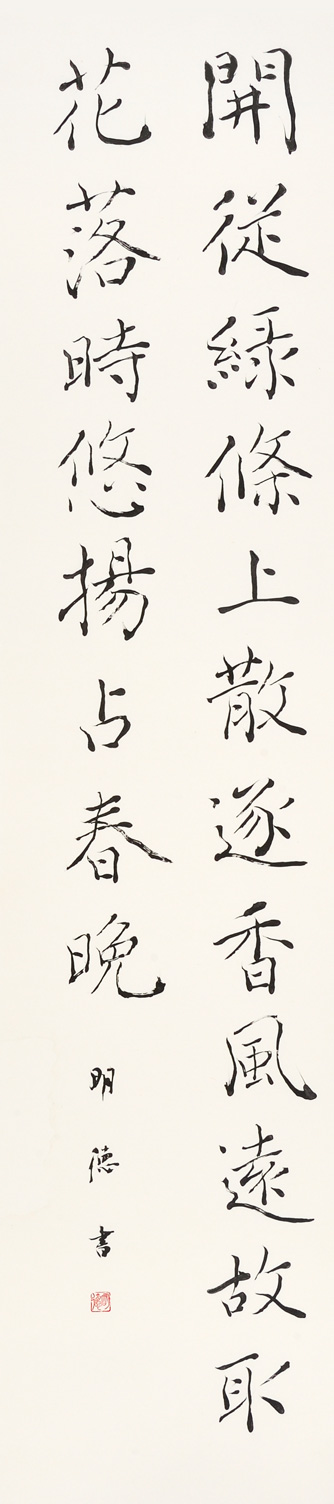 開從綠條上散逐香風遠故取
花落時悠揚占春晚
明德書